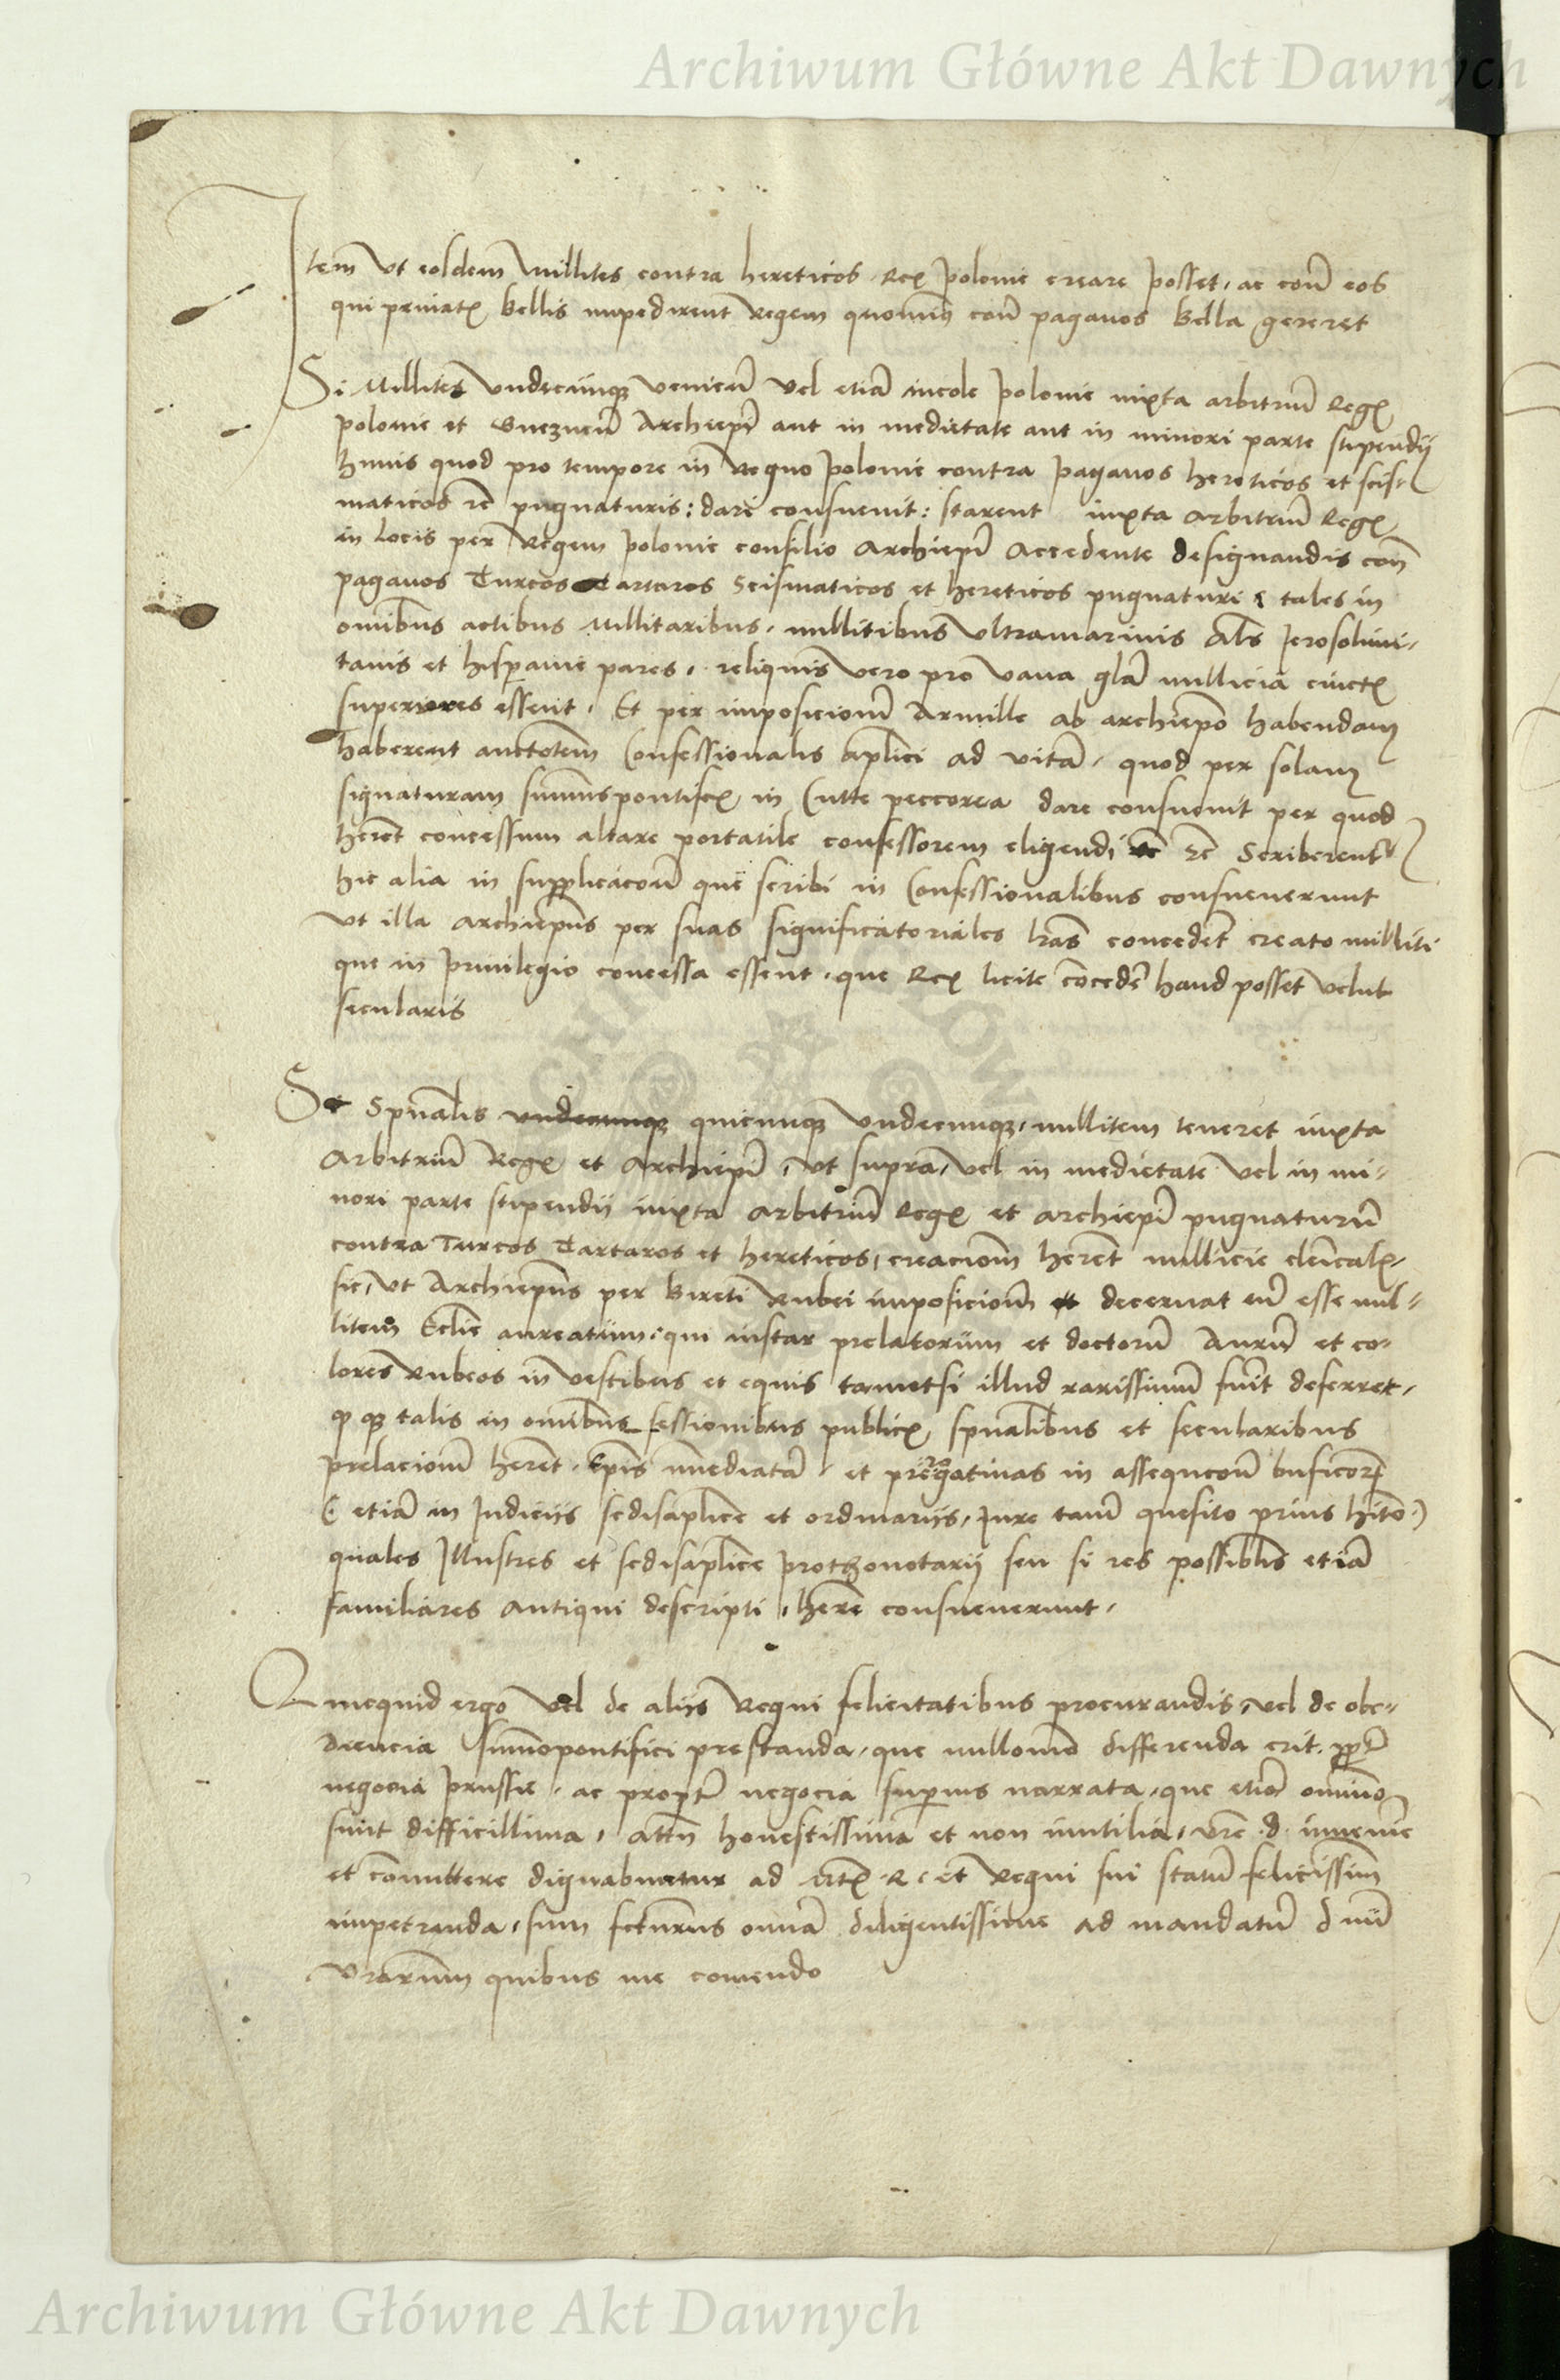 Archiwum Główne Akt Dawnych
Item Ut eosdem Millites contra hereticos Rex polonie creare posset, ac conͣ eos
qui privatꝭ bellis impedirent Regem quominꝰ conͣ paganos bella gereret
Si Millites Undecunqꝫ Uenieñ Uel etiã incole polonie iuxta arbitriũ Regꝭ
polonie et Gneznen̄ Archiepi̅ aut in medietate aut in minori parte stipendij
huius quod pro tempore in Regno polonie contra paganos hereticos et scis-
maticos pugnaturis: dari consuevit: starent iuxta Arbitriũ Regꝭ
in locis per Regem polonie consilio Archiepi̅ Accedente designandis con̄
paganos Turcos Tartaros Scismaticos et hereticos pugnaturi tales in
omibus actibus Millitaribus, millitibus Ultramarinis als Jerosolimi-
tanis et hispanie pares, reliquis Uero pro Uana gla̅ millicia cinctꝭ
superiores essent, Et per imposicionem Armille ab archiepo̅ habendam
haberent auctotem̄ Confessionalis aplici ad vitã, quod per solam
signaturam summuspontifex in pectorea dare consuevit per quod
herent̄ concessum altare portatile confessorem eligendi ⁊c̄ Scriberent᷑
hic alia in supplicacoñ que scribi in Confessionalibus consueverunt
Ut illa Archiepūs per suas significatoriales lr̄as concedet̄ creato milliti
que in privilegio concessa essent, que Rex licite concedẽ haud posset velut
secularis
Spūalis undecunqꝫ quicunqꝫ Undecunqꝫ, millitem teneret iuxta
Arbitriũ Regꝭ et Archiepi̅, Ut supra, Uel in medietate Uel in mi-
nori parte stipendij iuxta arbitriũ Regꝭ et archiepi̅ pugnaturũ
contra Turcos Tartaros et hereticos, creacionẽ herent̄ millicie clericalꝭ
sic, Ut Archiepūs per bireti Rubei imposicionẽ decernat eũ esse mil-
litem Ecclie aureatum: qui instar prelatorum et doctorũ Aurũ et co-
lores Rubeos in Uestibus et equis tametsi illud rarissimũ fuit deferret,
talis in omibus sessionibus publicꝭ spūalibus et secularibus
prelacionẽ herent̄, Epis̄ imediatã, et prerogativas in assequcoñ bn̄ficiorꝫ
(: etiã in Judicijs sedisaplice et ordinarijs, Jure tamẽ quesito prius hito̅:)
quales Illustres et sedisaplice prothonotarij seu si res possiblis etiã
familiares Antiqui descripti, here̅ consueverunt,
Quicquid ergo Uel de alijs Regni felicitatibus procurandis, Uel de obe-
diencia Sum̄opontifici prestanda, que nullomo̅ differenda erit, ppt̄
negocia prussie, ac proptẽ negocia supius narrata, que etiã omino
sunt difficillima, attn̄ honestissima et non inutilia, Ur̄e .d. invenire
et comittere dignabuntur ad .R. et Regni sui statũ felicissim̄
impetranda, sum fcturus omiã diligentissime Ad mandatũ d nũ
Ur̄arum quibus me comendo
Archiwum Główne Akt Dawnych